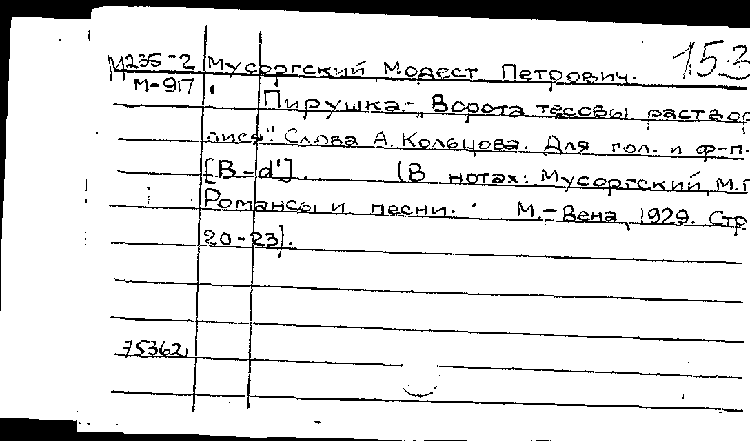 М235-2 Мусоргский Модест Петрович. 153
М-917
Пирушка- „Ворота тесовы раствор
лися" Слова А. Кольцова. Для гол. и ф-п.
[B-d']. (В нотах: Мусоргский, М.П
Романсы и песни. М.-Вена, 1929. Стр
20-23).
75362